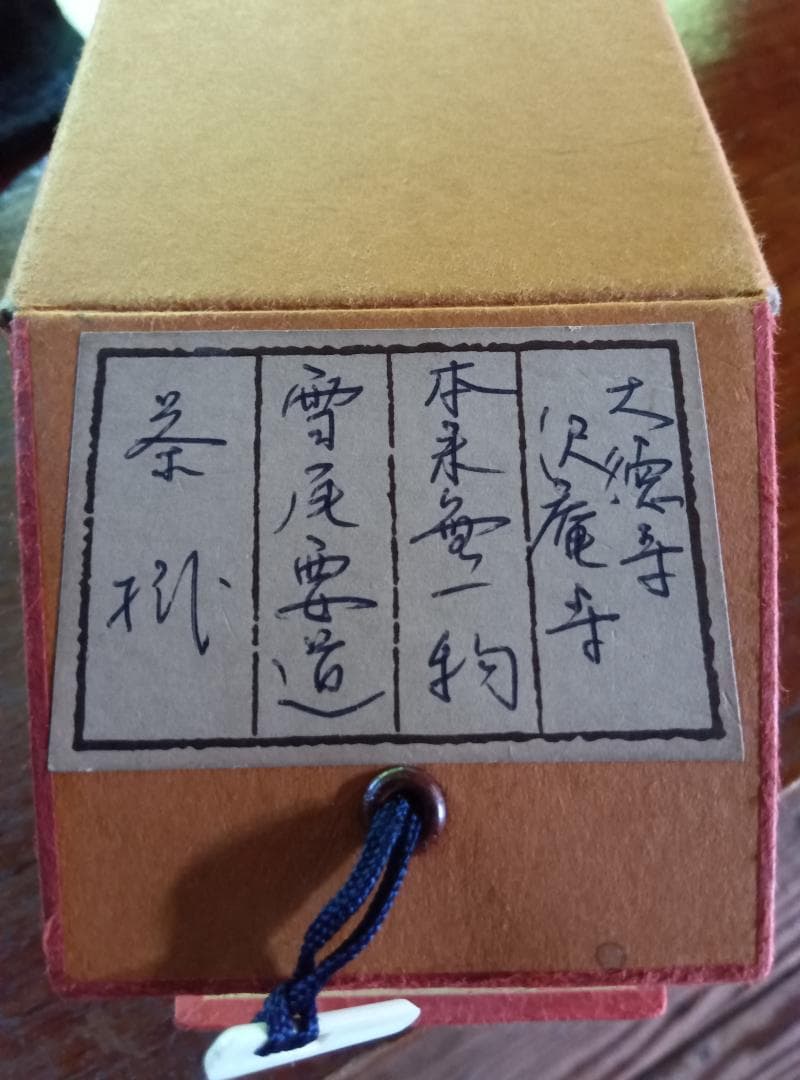 大徳寺
沢庵寺
本来無一物
雪尾要道
茶掛